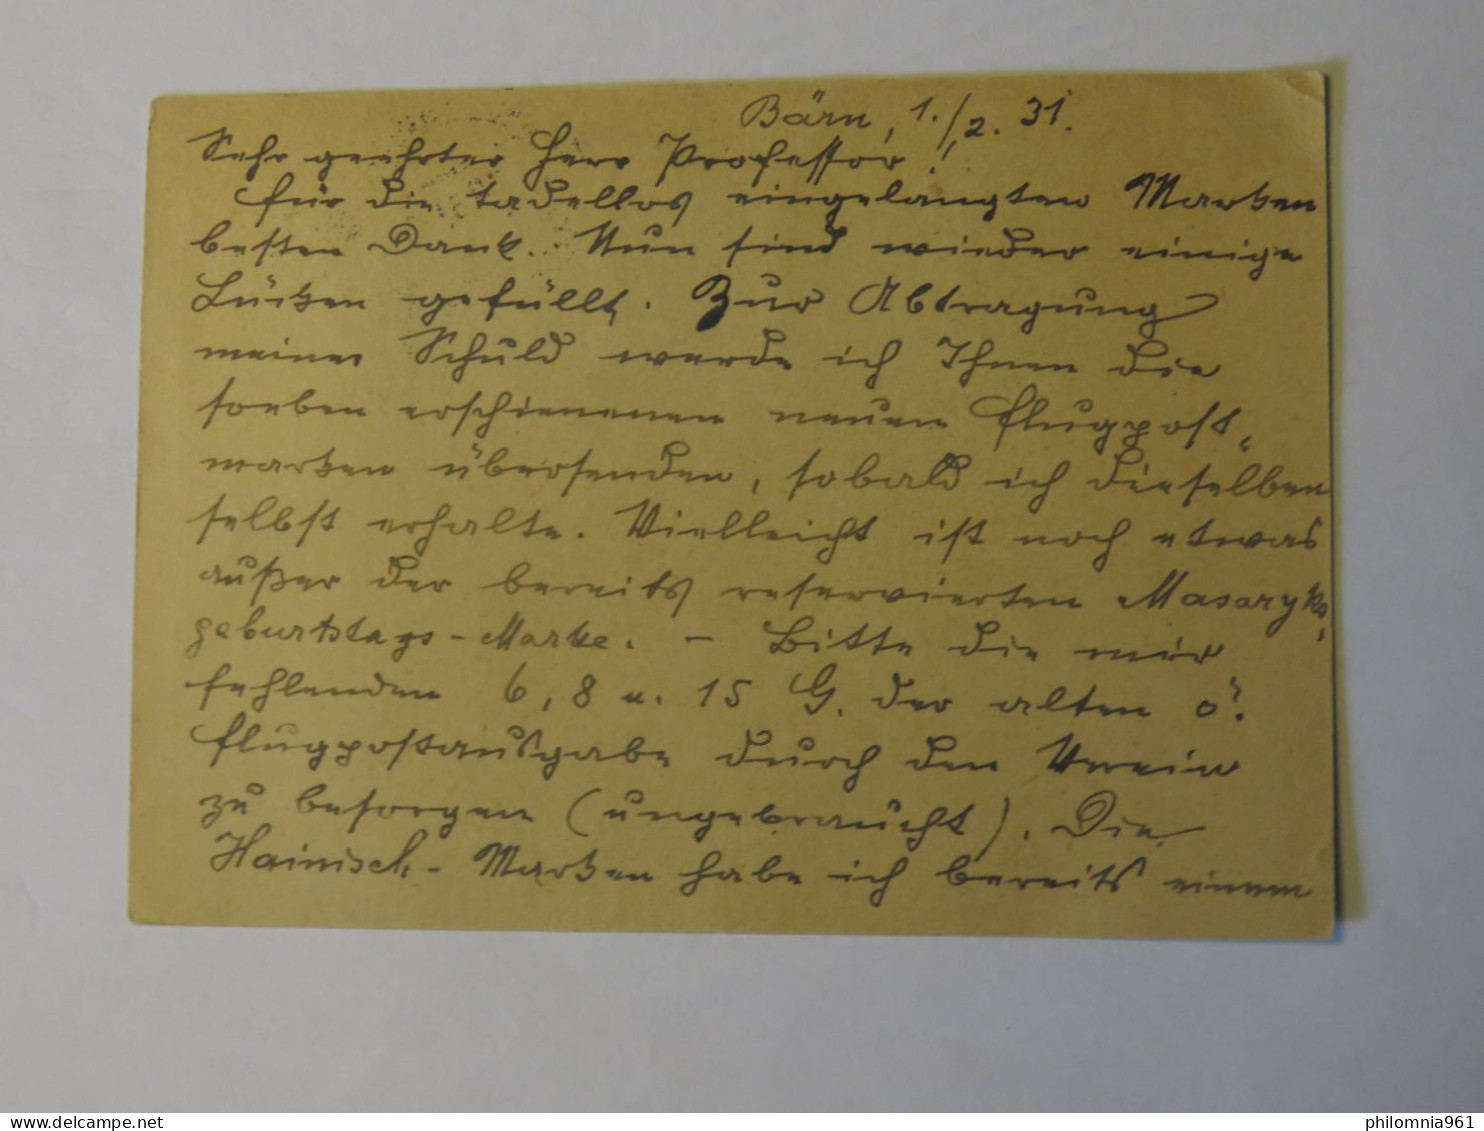 Bärn, 1./2. 31.
Sehr geehrter Herr Professor!
Für die tadellos eingelangten Marken
besten Dank. Nun sind wieder einige
Lücken gefüllt. Zur Abtragung
meiner Schuld werde ich Ihnen die
soeben erschienenen neuen Flugpost-
marken übersenden, sobald ich dieselben
selbst erhalte. Vielleicht ist noch etwas
außer der bereits reservierten Masaryk-
geburtstags-Marke. - Bitte die mir
fehlenden 6, 8 u. 15 G. der alten ö.
Flugpostausgabe durch den Verein
zu besorgen (ungebraucht). Die
Hainisch-Marken habe ich bereits einem
philomnia961